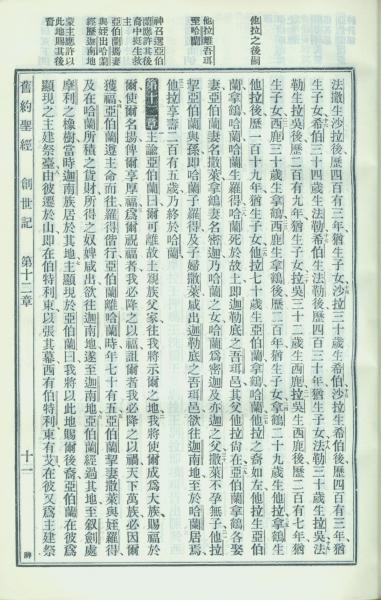 他拉之後嗣
他拉離吾珥
至哈蘭
神召選亞伯
蘭應許其後
裔中挺生救
主
亞伯蘭攜妻
與姪出哈蘭
經歷迦南地
蒙主應許以
此地賜其後
裔
法撒生沙拉後歷四百有三年猶生子女沙拉三十歲生希伯沙拉生希伯後歷四百有三年猶
生子女希伯三十四歲生法勒希伯生法勒後歷四百三十年猶生子女法勒三十歲生拉吳法
勒生拉吳後歷二百有九年猶生子女拉吳三十二歲生西鹿拉吳生西鹿後歷二百有七年猶
生子女西鹿三十歲生拿鶴西鹿生拿鶴後歷二百年猶生子女拿鶴二十九歲生他拉拿鶴生
他拉後歷一百十九年猶生子女他拉七十歲生亞伯蘭拿鶴哈蘭他拉之裔如左他拉生亞伯
蘭拿鶴哈蘭哈蘭生羅得哈蘭死於故土即迦勒底之吾珥邑其父他拉尚在亞伯蘭拿鶴各娶
妻亞伯蘭妻名撒萊拿鶴妻名密迦乃哈蘭之女哈蘭為密迦及亦迦之父撒萊不孕無子他拉
挈亞伯蘭與孫即哈蘭子羅得及子婦撒萊咸出迦勒底之吾珥邑欲往迦南地至於哈蘭居焉
他拉享壽二百有五歲乃終於哈蘭
第十二章 主諭亞伯蘭曰爾可離故土親族父家往我將示爾之地我將使爾成為大族賜福於
爾使爾名揚俾爾享厚福為爾祝福者我必降之以福詛爾者我必降之以禍天下萬族必因爾
獲福亞伯蘭遵主命而往羅得偕行亞伯蘭離哈蘭時年七十有五亞伯蘭挈妻撒萊與姪羅得
及在哈蘭所積之貨財所得之奴婢咸出欲往迦南地遂至迦南地亞伯蘭經過其地至叙劍處
摩利之橡樹當時迦南族居於其地主顯現於亞伯蘭曰我將以此地賜爾後裔亞伯蘭在彼為
顯現之主建祭臺由彼遷於山即在伯特利東以張其幕西有伯特利東有艾在彼又為主建祭
舊約聖經 創世記 第十二章 十二